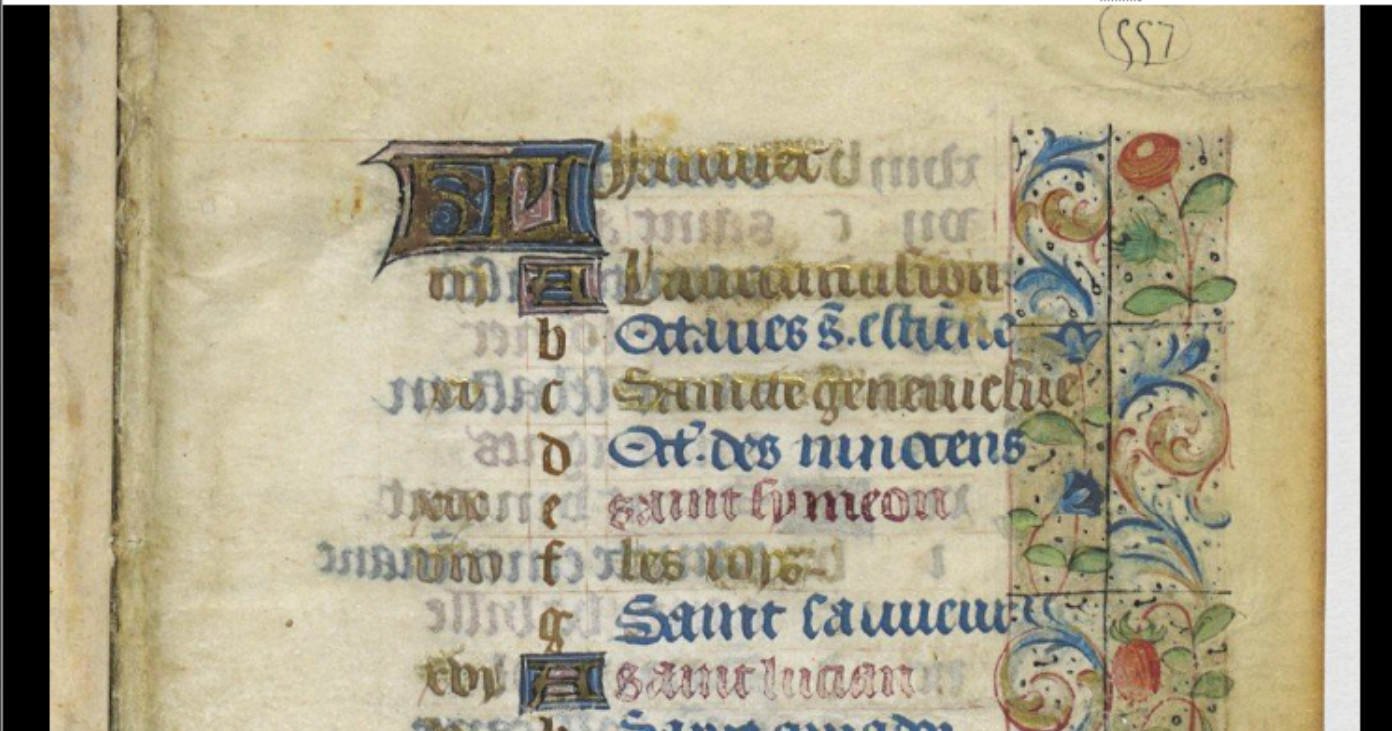 557
KL Januier
iii A La circuncision
b Oct.aues s̄. estiēne
xi c Saincte geneuiefue
d Oct. des innocens
xix e saint symeon
viii f les rois
g Saint sauueur
xvi A saint lucian
b Saint amador